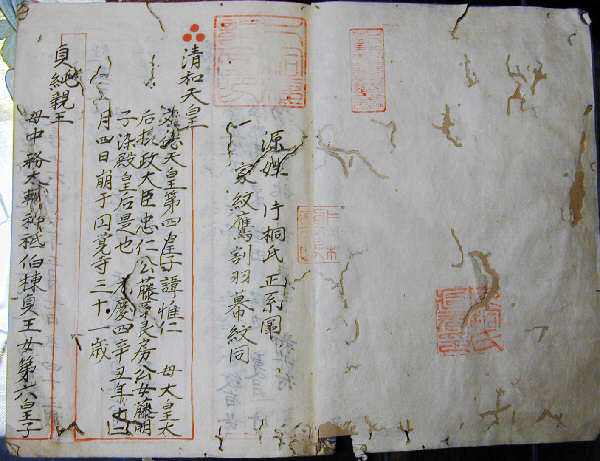 源姓 片桐氏 正系圖
一 家紋鷹割羽幕紋同
清和天皇
文徳天皇第四皇子諱惟仁 母大皇太
后摂政大臣忠仁公藤原良房公女藤明
子染殿皇后是也 慶四辛丑年十二
月四日崩于円覚寺三十一歳
貞純親王
母中務大輔神祇伯棟貞王女第六皇子